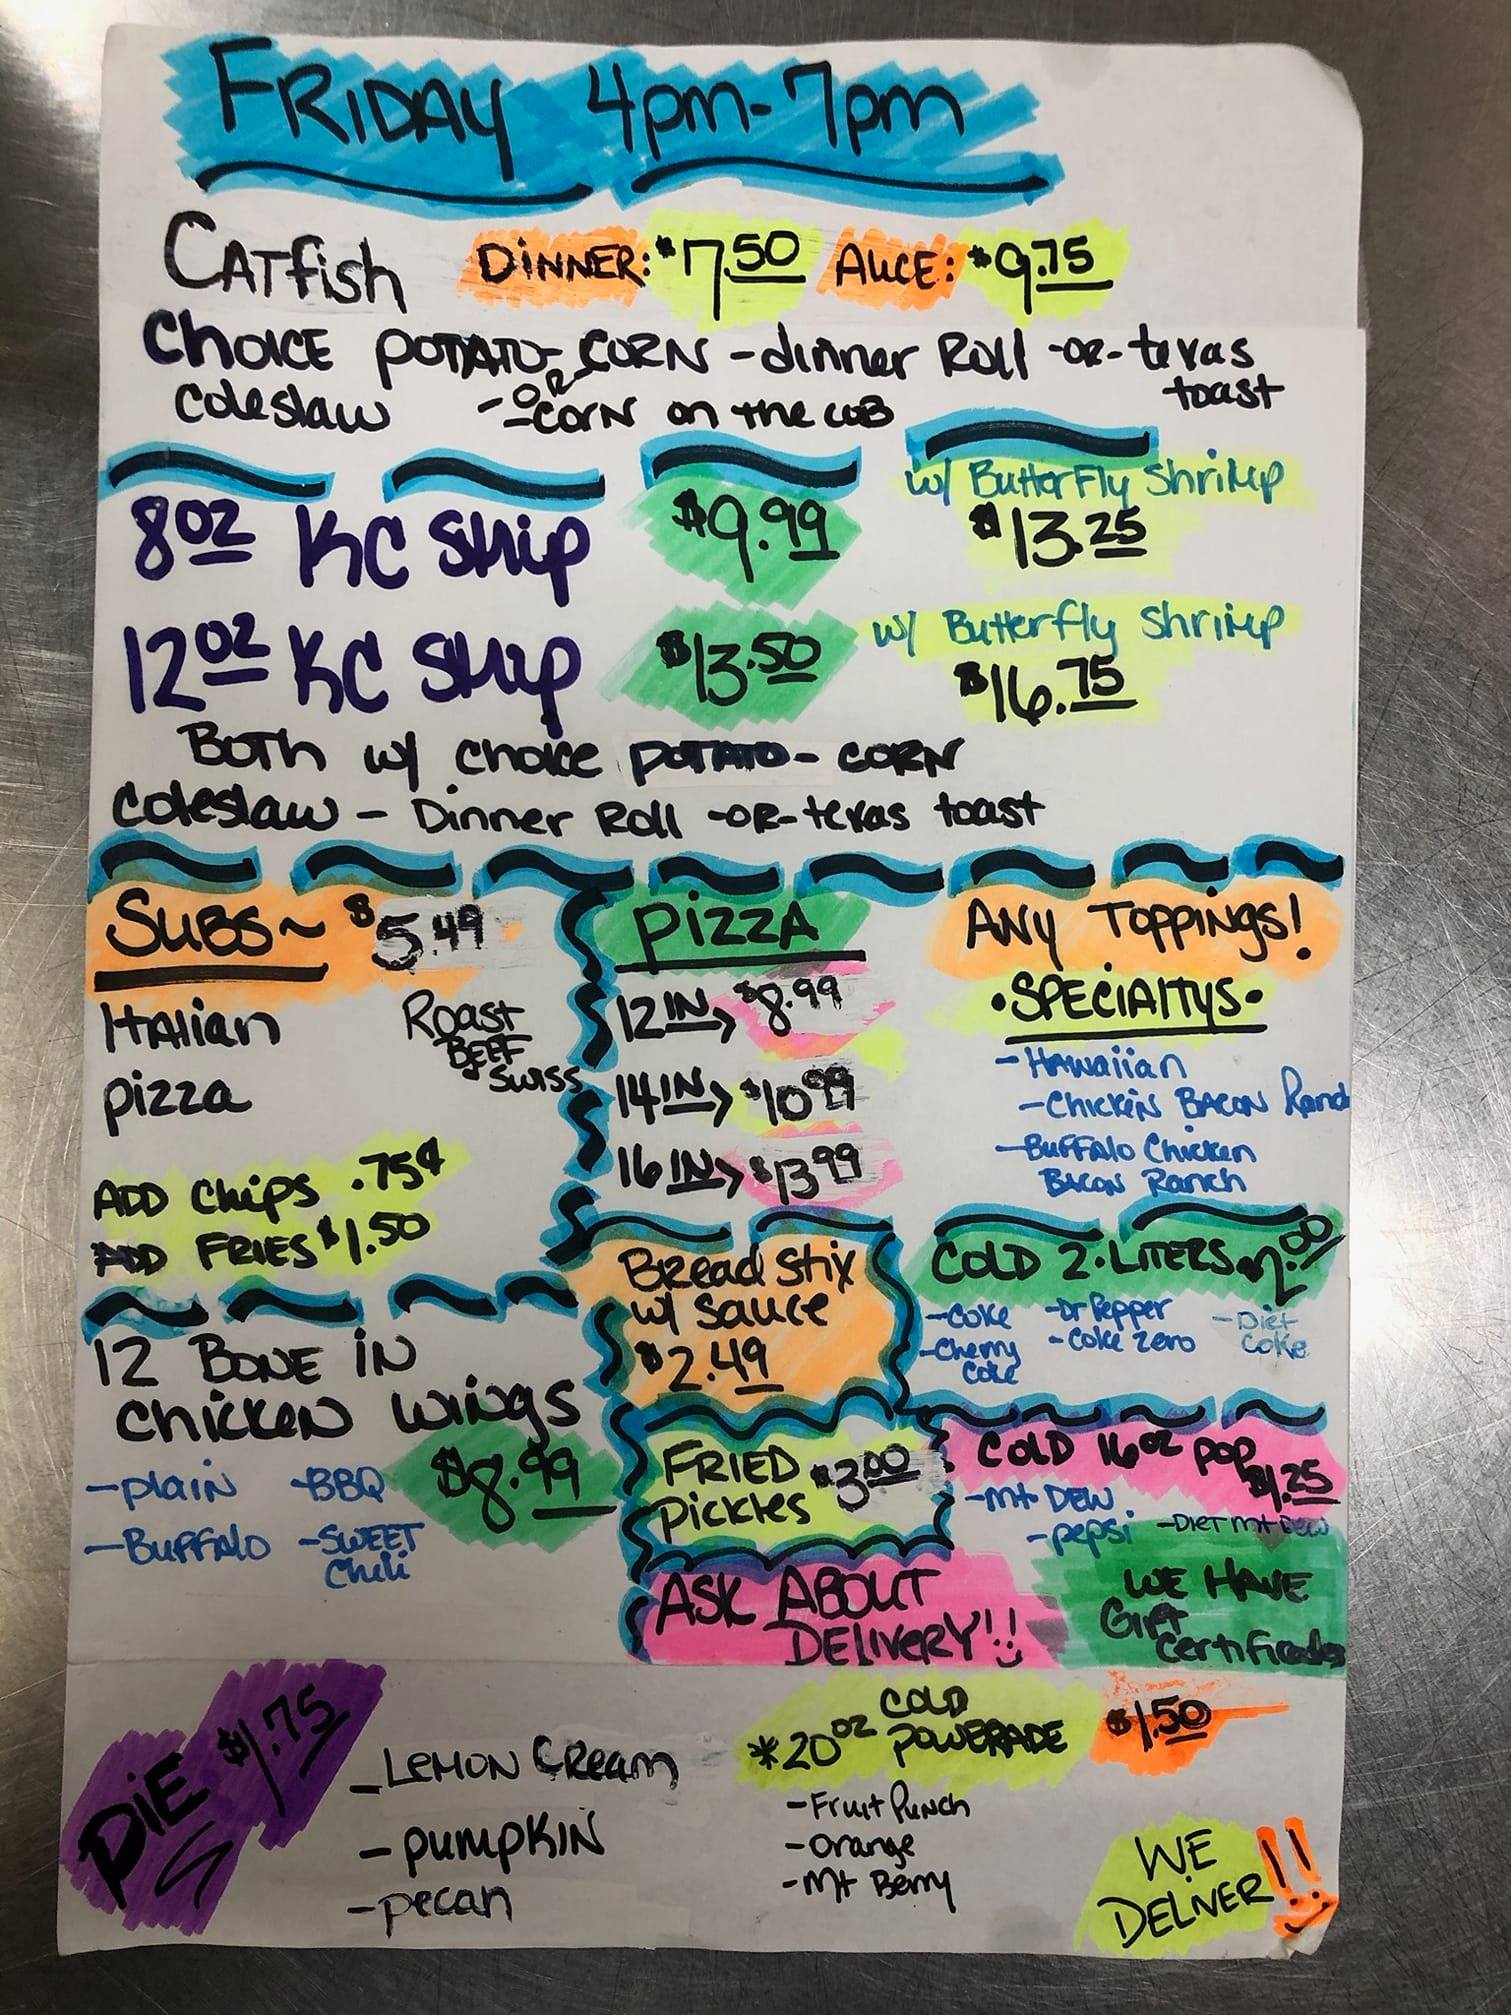 FRIDAY 4pm-7pm
CATfish DINNER: $7.50 AUCE: $9.75
CHOICE POTATO - CORN - dinner Roll -OR- texas toast
coleslaw -OR- CORN on the COB
8oz KC Strip $9.99 w/ Butterfly Shrimp
$13.25
12oz KC Strip $13.50 w/ Butterfly Shrimp
$16.75
BOTH w/ choice POTATO - CORN
Coleslaw - Dinner Roll -OR- texas toast
SUBS~ $5.49
Italian
Roast BEEF & SWISS
pizza
ADD Chips .75¢
ADD FRIES $1.50
PIZZA
12 IN→ $8.99
14 IN→ $10.99
16 IN→ $13.99
ANY TOPPINGS!
•SPECIAlTYS•
- HAWaiian
- CHICKEN BACON Ranch
- BUFFAlo Chicken
Bacon Ranch
12 BONE IN
chicken wings
$8.99
- plain - BBQ
- BUFFAlO - SWEET
Chili
Bread Stix
w/ Sauce
$2.49
COLD 2-LITERS $2.00
- Coke - Dr Pepper - Diet
Coke
- Cherry
Coke - Coke Zero
FRIED
pickles $3.00
COLD 16oz pop
$1.25
- Mt DEW
- pepsi - DIET Mt Dew
ASK ABOUT
DELIVERY!!
WE HAVE
Gift
Certificates
PIE $1.75
- LEMON CREam
- PUMPKIN
- pecan
*20oz COLD
POWERADE $1.50
- Fruit Punch
- Orange
- Mt Berry
WE
DELIVER!!